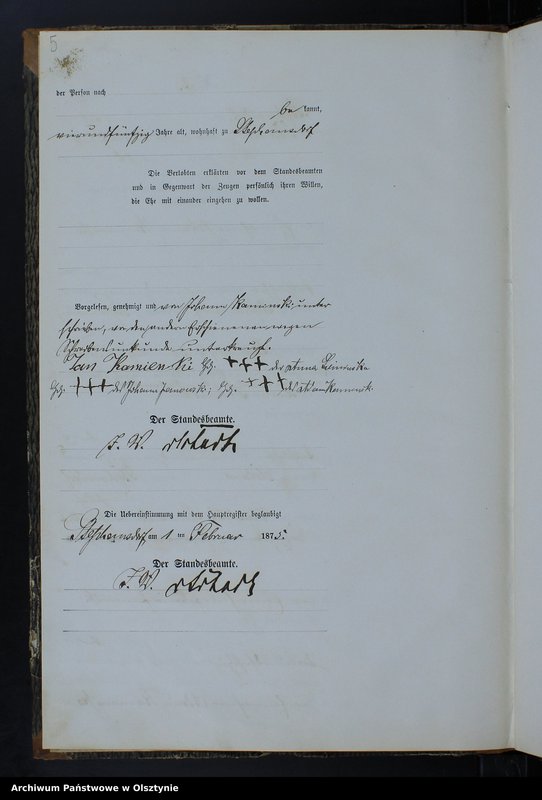 5
der Person nach
be kannt,
vierundfünfzig Jahre alt, wohnhaft zu
Die Verlobten erklärten vor dem Standesbeamten
und in Gegenwart der Zeugen persönlich ihren Willen,
die Ehe mit einander eingehen zu wollen.
Vorgelesen, genehmigt und von Johann Kamienski unter
schrieben, von den andern Erschienenen wegen
Schreibensunkunde unterkreuzt.
Jan Kamienski Hz. +++ der Anna
Hz. +++ des Johann; Hz. +++ des Adam
Der Standesbeamte.
J. V.
Die Uebereinstimmung mit dem Hauptregister beglaubigt
am 1 ten Februar 1875.
Der Standesbeamte.
J. V.
Archiwum Państwowe w Olsztynie